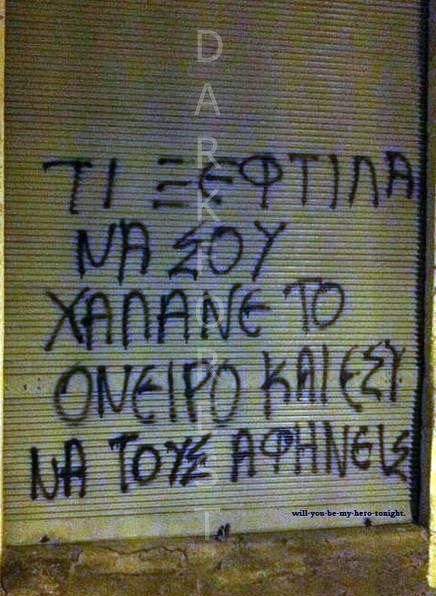 ΤΙ ΞΕΦΤΙΛΑ
ΝΑ ΣΟΥ
ΧΑΛΑΝΕ ΤΟ
ΟΝΕΙΡΟ ΚΑΙ ΕΣΥ
ΝΑ ΤΟΥΣ ΑΦΗΝΕΙΣ
will-you-be-my-hero-tonight.